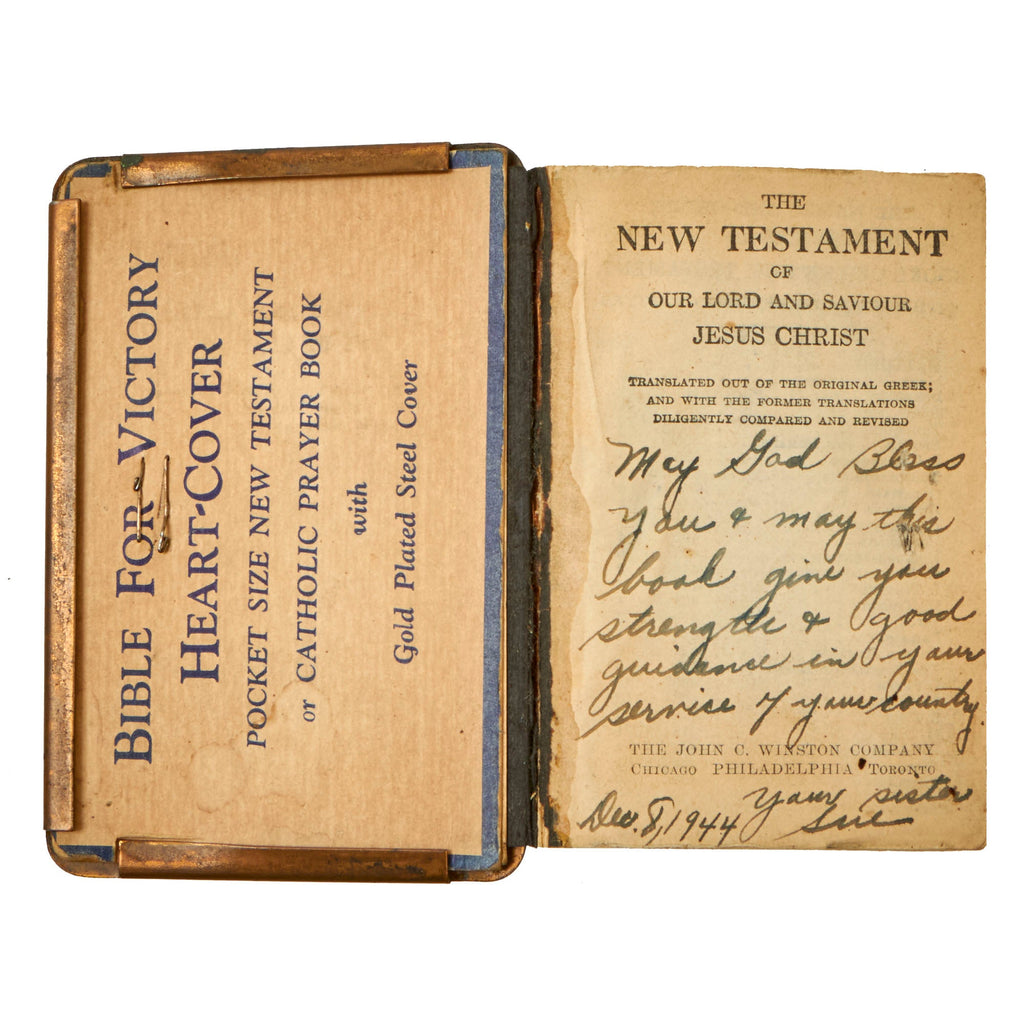 BIBLE FOR VICTORY
HEART-COVER
POCKET SIZE NEW TESTAMENT
or CATHOLIC PRAYER BOOK
with
Gold Plated Steel Cover
THE
NEW TESTAMENT
OF
OUR LORD AND SAVIOUR
JESUS CHRIST
TRANSLATED OUT OF THE ORIGINAL GREEK;
AND WITH THE FORMER TRANSLATIONS
DILIGENTLY COMPARED AND REVISED
May God Bless
You & may this
book give you
strength & good
guidance in your
service of your country
THE JOHN C. WINSTON COMPANY
CHICAGO PHILADELPHIA TORONTO
Your sister
Dec. 8, 1944 Sue